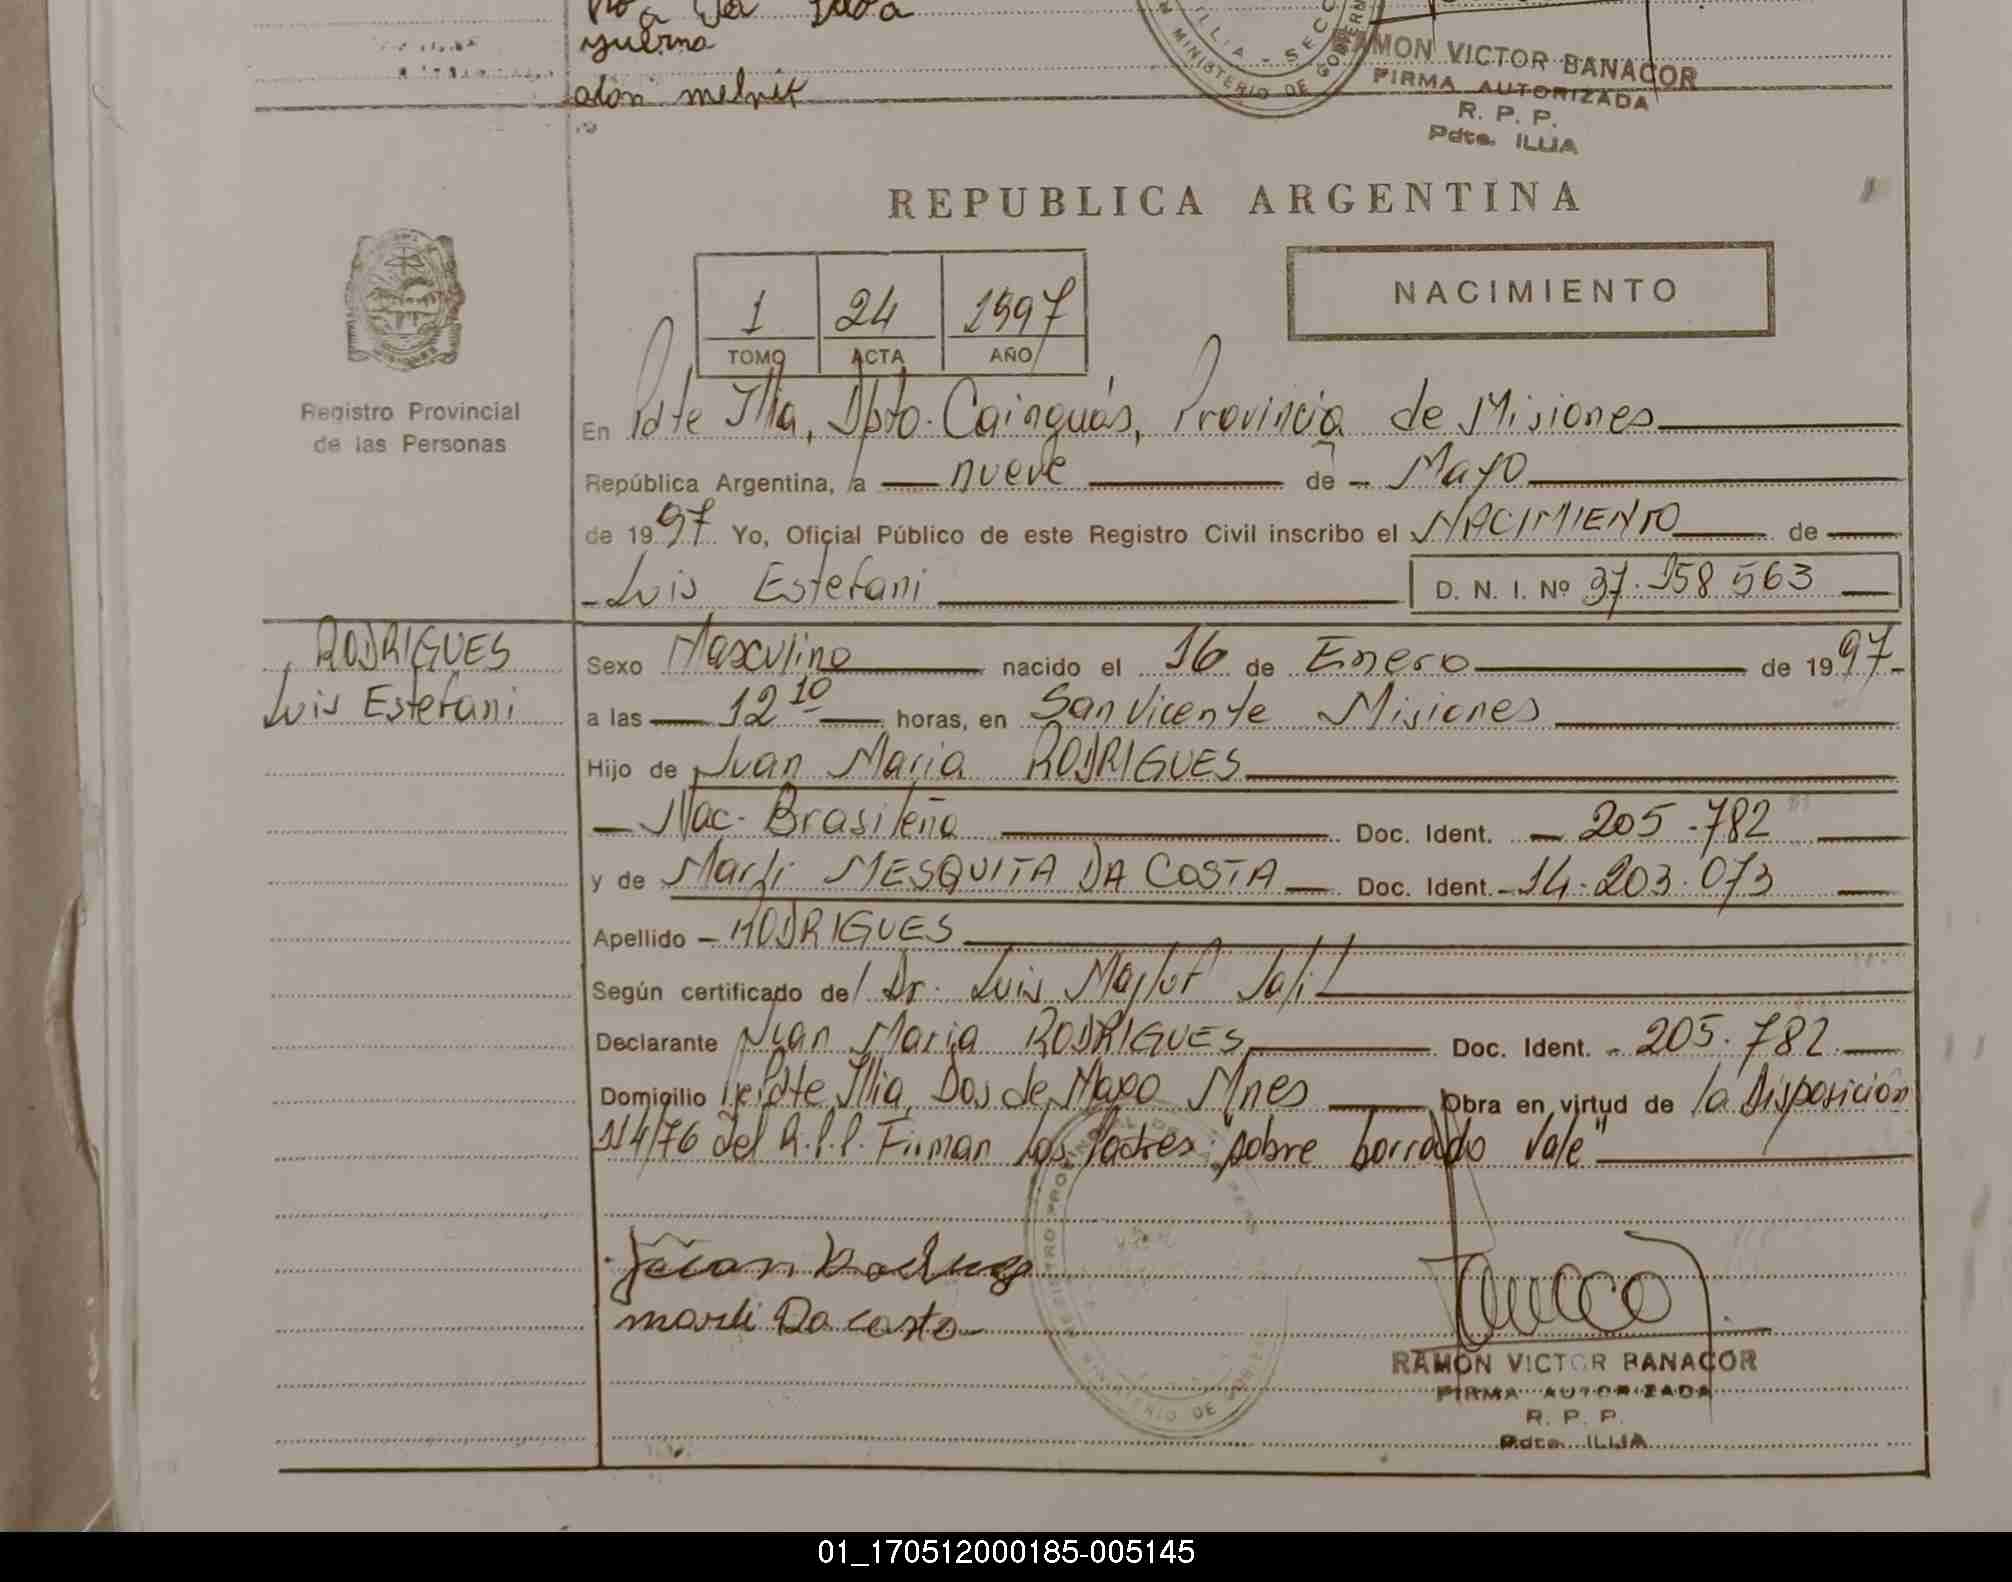 yuerna
RAMON VICTOR BANACOR
FIRMA AUTORIZADA
R. P. P.
Pdte. ILLIA
MINISTERIO DE
REPUBLICA ARGENTINA
NACIMIENTO
1 24 1997
TOMO ACTA AÑO
Registro Provincial
de las Personas
En Pdte Illia, Dpto. Cainguás, Provincia de Misiones
República Argentina, a nueve de Mayo
de 1997 Yo, Oficial Público de este Registro Civil inscribo el NACIMIENTO de
Luis Estefani D. N. I. Nº 37.158 563
RODRIGUES
Luis Estefani
Sexo Masculino nacido el 16 de Enero de 1997
a las 12 10 horas, en San Vicente Misiones
Hijo de Juan Maria RODRIGUES
Nac. Brasileña Doc. Ident. 205.782
y de Marli MESQUITA DA COSTA Doc. Ident. 14.203.073
Apellido RODRIGUES
Según certificado del Dr. Luis Jalil
Declarante Juan Maria RODRIGUES Doc. Ident. 205.782
Domicilio Pdte Illia, Dos de Mayo Mnes Obra en virtud de la Disposición
114/76 del R.P.P. Firman los Padres "sobre borrado vale"
marli Da costa
RAMON VICTOR BANACOR
FIRMA AUTORIZADA
R. P. P.
Pdte. ILLIA
01_170512000185-005145